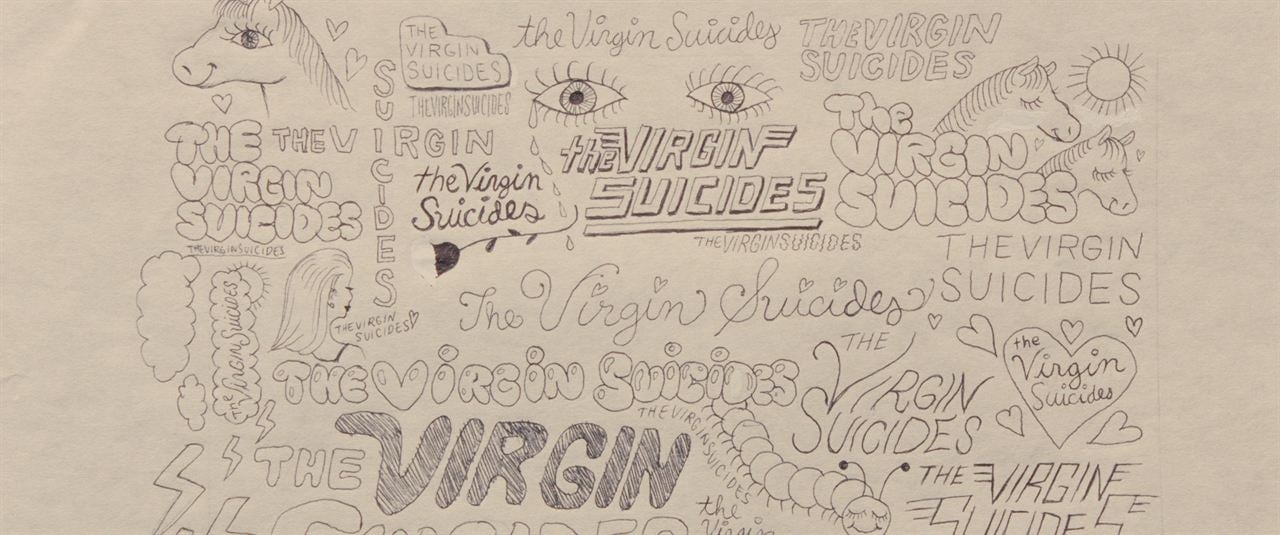 THE
VIRGIN
SUICIDES
the Virgin Suicides
THEVIRGIN
SUICIDES
THEVIRGINSUICIDES
THE
VIRGIN
SUICIDES
THE VIRGIN
SUICIDES
the Virgin
Suicides
the VIRGIN
SUICIDES
The
VIRGIN
SUICIDES
THEVIRGINSUICIDES
THEVIRGINSUICIDES
THEVIRGIN
SUICIDES
The Virgin Suicides
THE VIRGIN
SUICIDES
The Virgin Suicides
THE VIRGIN SUICIDES
THE
VIRGIN
SUICIDES
the
Virgin
Suicides
THEVIRGINSUICIDES
THE VIRGIN
SUICIDES
the
Virgin
THE VIRGIN
SUICIDES